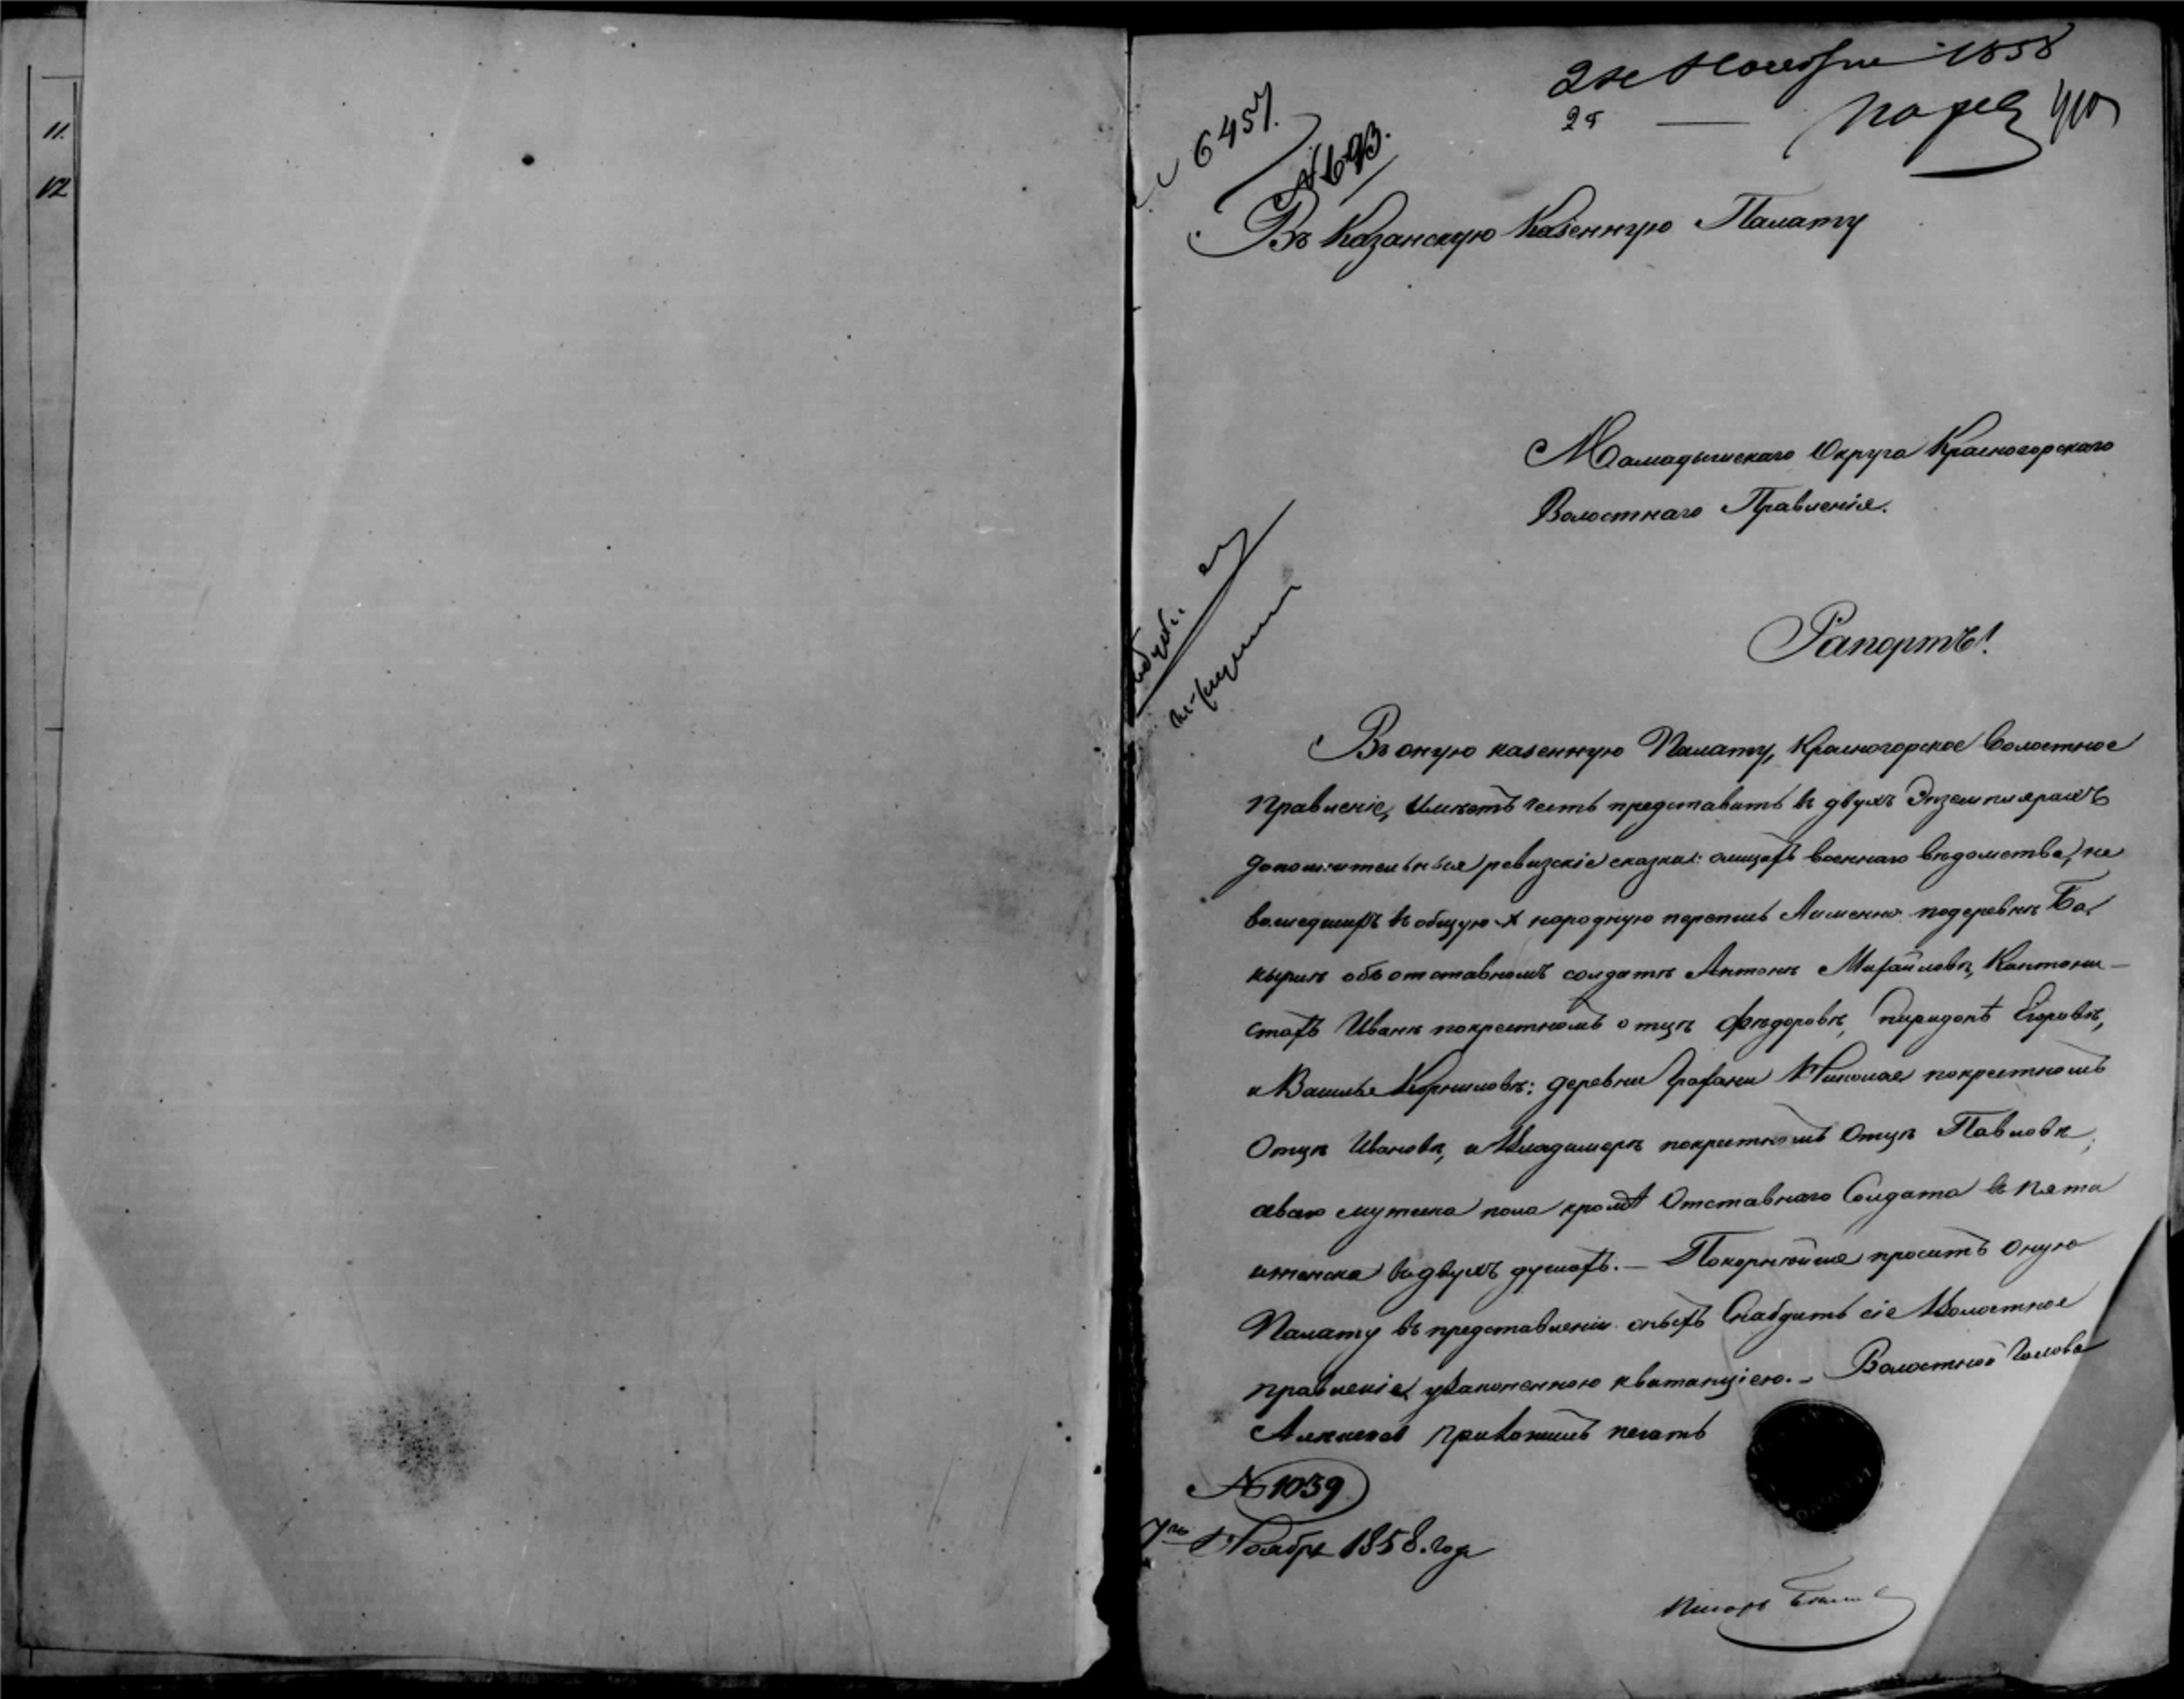 11.
12
24 Ноября 1858
25 —
6457.
№ 693.
Въ Казанскую Казенную Палату
Мамадышскаго Округа Красногорскаго
Волостнаго Правленія.
Рапортъ!
Въ оную казенную Палату, Красногорское Волостное
правленіе, Имѣетъ честь представить въ двухъ Экземплярахъ
дополнительныя ревизскіе сказки: олицахъ военнаго вѣдомства, не
вошедшихъ въ общую X народную перепись Аименно подеревнѣ Ба
кырчи объ отставномъ солдатѣ Антонѣ Михайловѣ, Кантони-
стахъ Иванѣ покрестномъ отцѣ Фѣдоровѣ, Егоровѣ,
и Василье Корниловѣ: деревни Графани Николае покрестномъ
Отцѣ Ивановѣ, и Владимерѣ покрестномъ Отцѣ Павловѣ,
авсего мужеска пола кромѣ Отставнаго Солдата въ пяти
иженска вдвухъ душахъ. — Покорнѣйше проситъ Оную
Палату въ представленіи оныхъ Снабдить сіе Волостное
правленіе узаконенною квитанціею. — Волостной Голова
Алексѣевъ приложилъ печать
№ 1039
7го Ноября 1858. года
Писарь